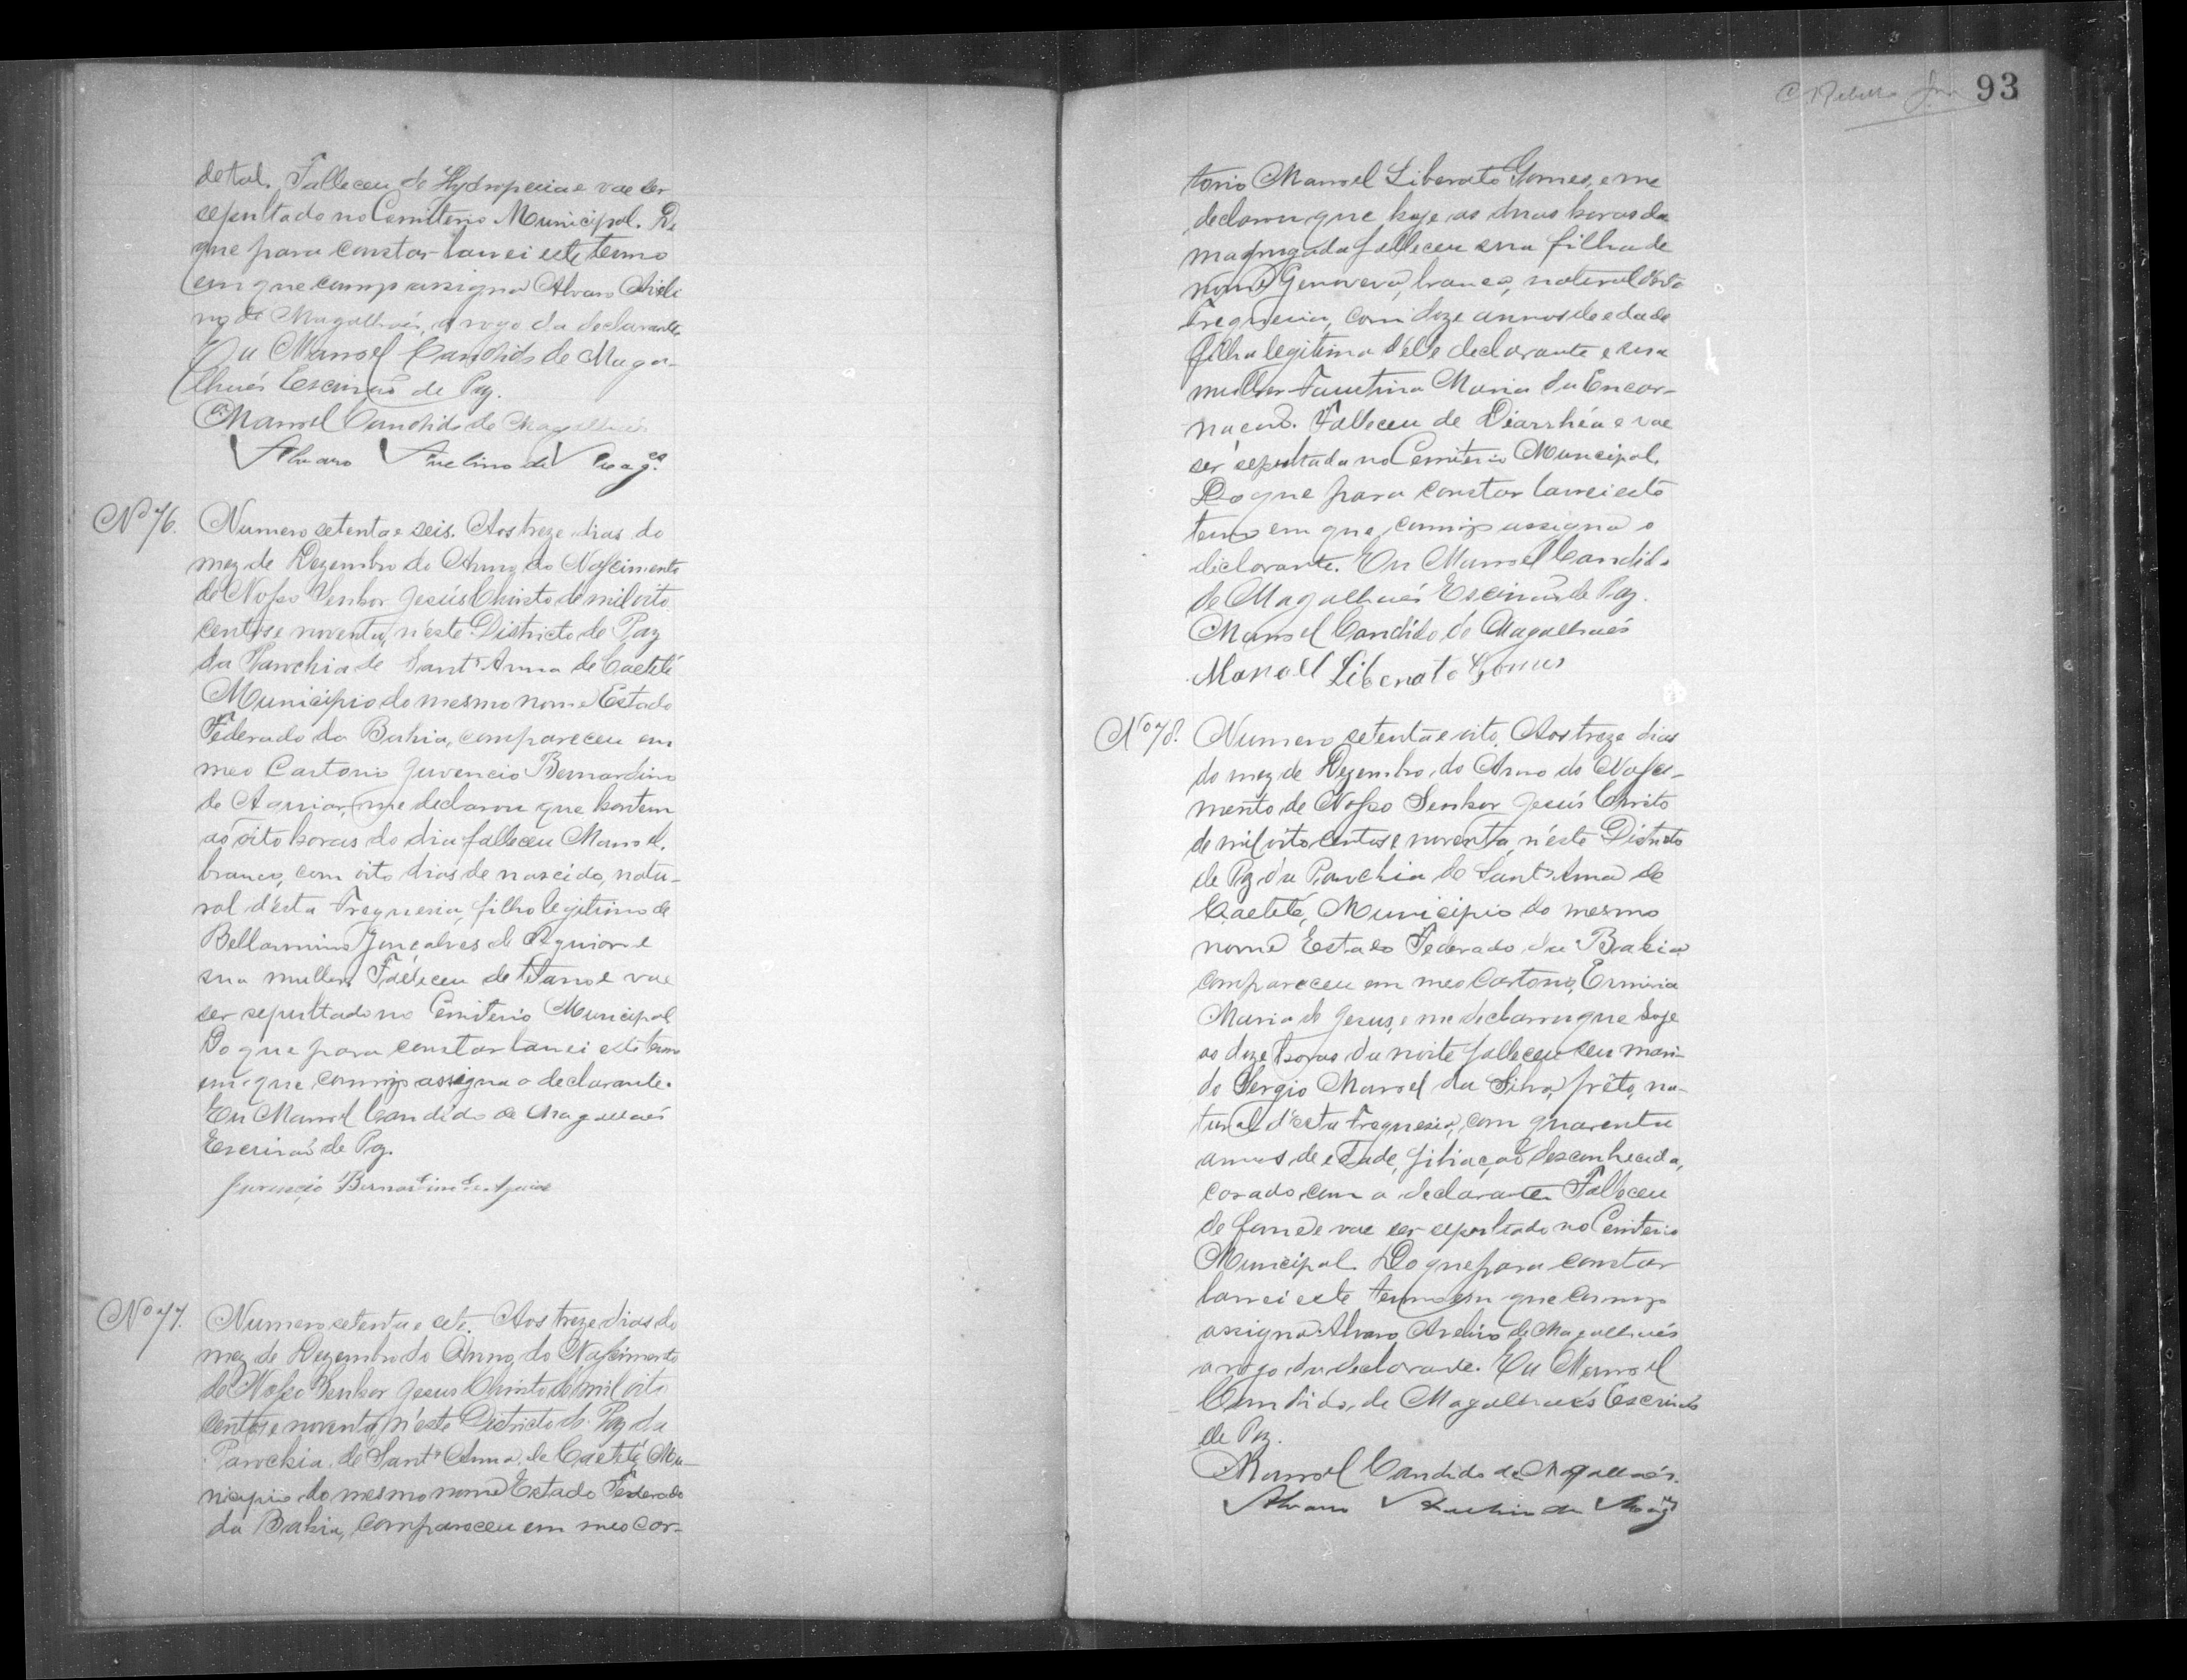 de tal. Falleceu de Hydropesia e vae ser
sepultado no Cemiterio Municipal. Do
que para constar lavrei este termo
em que comigo assigna Alvaro Aveli
no de Magalhaés, a rogo da declarante.
Eu Manoel Candido de Maga-
lhaés Escrivaõ de Paz.
Manoel Candido de Magalhaés
Alvaro Avelino de Mag.es
Nº 76. Numero setenta e seis. Aos treze dias do
mez de Dezembro do Anno do Nascimento
de Nosso Senhor Jesús Christo de mil oito
centos e noventa, n'este Districto de Paz
da Parochia de Sant'Anna de Caetité
Municipio do mesmo nome Estado
Federado da Bahia, compareceu em
meo Cartorio Juvencio Bernardino
de Aguiar, me declarou que hontem
as oito horas do dia falleceu Manoel,
branco, com oito dias de nascido, natu-
ral d'esta Freguesia, filho legitimo de
Bellarmino Gonçalves de Aguiar e
sua mulher. Falleceu de tetano e vae
ser sepultado no Cemiterio Municipal
Do que para constar lavrei este termo
em que comigo assigna o declarante.
Eu Manoel Candido de Magalhaés
Escrivaõ de Paz.
Juvencio Bernardino de Aguiar
Nº 77. Numero setenta e sete. Aos treze dias do
mez de Dezembro do Anno do Nascimento
de Nosso Senhor Jesus Christo de mil oito
centos e noventa, n'este Districto de Paz da
Parochia de Sant'Anna de Caetité, Mu-
nicipio do mesmo nome Estado Federado
da Bahia, compareceu em meo Car-
93
torio Manoel Liberato Gomes, e me
declarou que hoje as duas horas da
madrugada falleceu sua filha de
nome Genoveva, branca, natural d'esta
Freguesia, com doze annos de edade
filha legitima d'elle declarante e sua
mulher Faustina Maria da Encar-
nacaõ. Falleceu de Diarrhéa e vae
ser sepultada no Cemiterio Municipal.
Do que para constar lavrei este
termo em que comigo assigna o
declarante. Eu Manoel Candido
de Magalhaés Escrivaõ de Paz.
Manoel Candido de Magalhaés
Manoel Liberato Gomes
Nº 78. Numero setenta e oito. Aos treze dias
do mez de Dezembro, do Anno do Nasci-
mento de Nosso Senhor Jesús Christo
de mil oito centos e noventa, n'este Districto
de Paz da Parochia de Sant'Anna de
Caetité, Municipio do mesmo
nome Estado Federado da Bahia
compareceu em meo Cartorio, Erminia
Maria de Jesus, e me declarou que hoje
as doze horas da noite falleceu seu mari-
do Sergio Manoel da Silva, prêto, na-
tural d'esta Freguesia, com quarenta
annos de edade, filiaçaõ desconhecida,
casado com a declarante. Falleceu
de fome e vae ser sepultado no Cemiterio
Municipal. Do que para constar
lavrei este termo em que comigo
assigna Alvaro Avelino de Magalhaés
a rogo da declarante. Eu Manoel
Candido de Magalhaés Escrivaõ
de Paz.
Manoel Candido de Magalhaés.
Alvaro Avelino de Mag.es